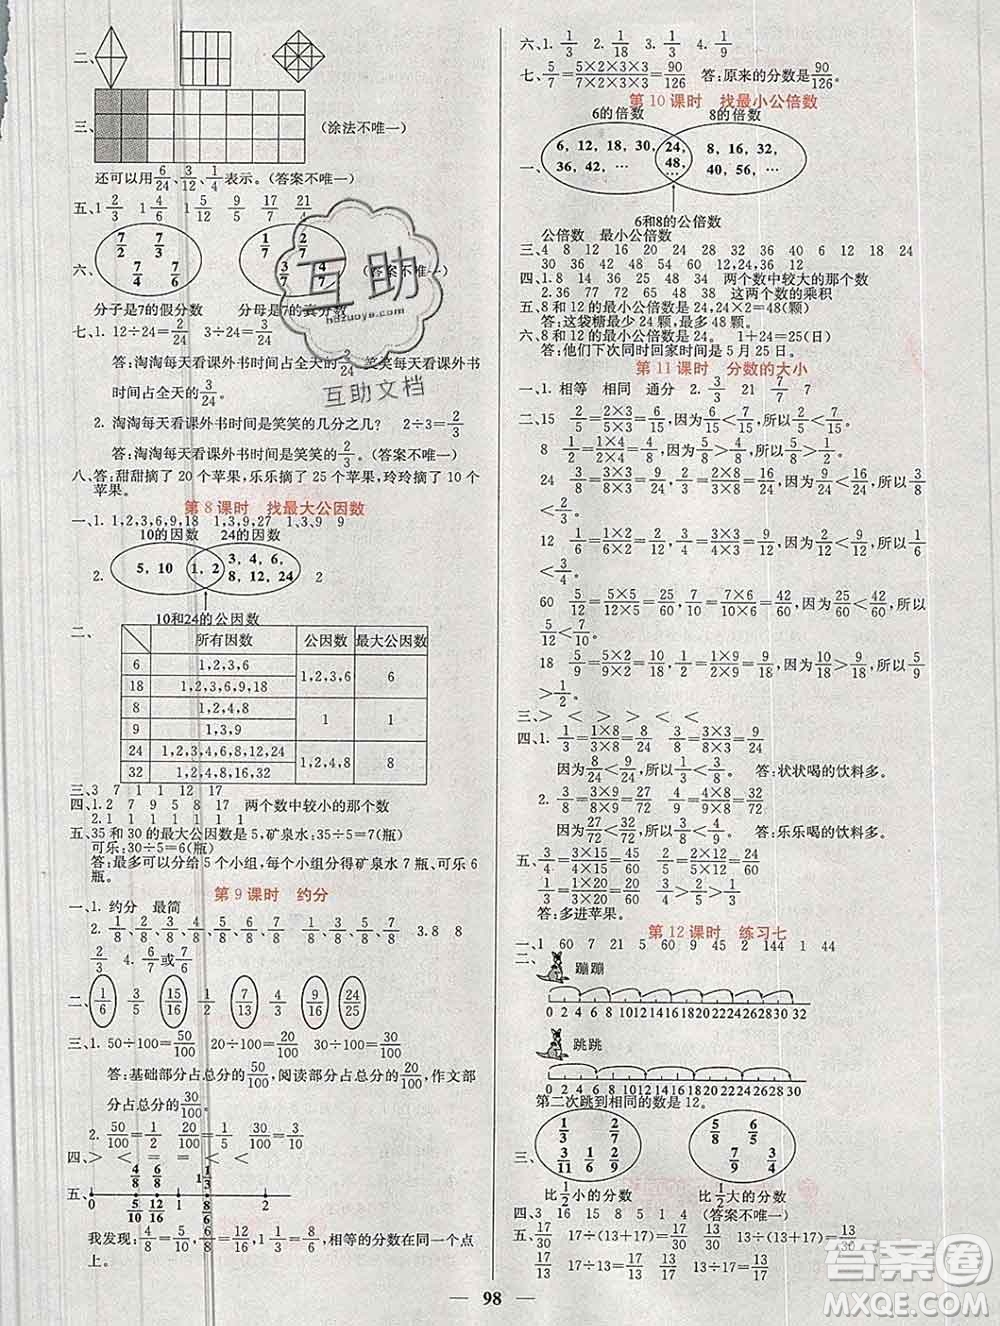 二、
三、
(涂法不唯一)
还可以用6/24、3/12、1/4表示。(答案不唯一)
五、1 2/3 1 4/6 5/12 9/5 17/7 21/4
六、
7/2 7/3 7/4 7/6
1/7 2/7 3/7 4/7
(答案不唯一)
分子是7的假分数 分母是7的真分数
七、1. 12÷24=2/24 3÷24=3/24
答:淘淘每天看课外书时间占全天的2/24,笑笑每天看课外书
时间占全天的3/24。
2. 淘淘每天看课外书时间是笑笑的几分之几? 2÷3=2/3
答:淘淘每天看课外书时间是笑笑的2/3。(答案不唯一)
八、答:甜甜摘了 20 个苹果,乐乐摘了 25 个苹果,玲玲摘了 10 个
苹果。
第 8 课时 找最大公因数
一、1. 1,2,3,6,9,18 1,3,9,27 1、3、9 9
10的因数 24的因数
2. 5,10 1,2 3,4,6,
8,12,24 2
10和24的公因数
二、
所有因数 公因数 最大公因数
6 1,2,3,6 1,2,3,6 6
18 1,2,3,6,9,18
8 1,2,4,8 1 1
9 1,3,9
24 1,2,3,4,6,8,12,24 1,2,4,8 8
32 1,2,4,8,16,32
三、3 7 1 1 12 17
四、1. 2 7 9 5 8 17 两个数中较小的那个数
2. 1 1 1 1 1 1
五、35 和 30 的最大公因数是 5,矿泉水:35÷5=7(瓶)
可乐:30÷5=6(瓶)
答:最多可以分给 5 个小组,每个小组分得矿泉水 7 瓶、可乐 6
瓶。
第 9 课时 约分
一、1. 约分 最简
2. 1/8、2/8、3/8、4/8、5/8、6/8、7/8 1/8、3/8、5/8、7/8 3. 8 8
2/3 4. 6/7或7/6
二、1/6 3/5 15/16 1/2 7/13 4/5 9/16 24/25
三、1. 50÷100=50/100 20÷100=20/100 30÷100=30/100
答:基础部分占总分的50/100,阅读部分占总分的20/100,作文部
分占总分的30/100。
2. 50/100=1/2 20/100=1/5 30/100=3/10
四、> < = = > <
五、
4/8 6/8 1 1/3
0 5/10 12/16 1 8/6 2
我发现:4/8=5/10,6/8=12/16,1 1/3=8/6,相等的分数在同一个点
上。
六、1. 1/3 2. 1/18 3. 1/3 4. 1/9
七、5/7=5×2×3×3/7×2×3×3=90/126 答:原来的分数是90/126。
第 10 课时 找最小公倍数
6的倍数 8的倍数
一、
6,12,18,30,
36,42,…
24,
48,…
8,16,32,
40,56,…
6和8的公倍数
公倍数 最小公倍数
三、4 8 12 16 20 24 28 32 36 40 6 12 18 24
30 36 42 48 54 60 12,24,36 12
四、1. 8 14 36 24 16 51 两个数中较大的那个数
2. 36 77 88 65 18 18 这两个数的乘积
五、8 和 12 的最小公倍数是 24,24×2=48(颗)
答:这袋糖最少 24 颗,最多 48 颗。
六、8 和 12 的最小公倍数是 24。 1+24=25(日)
答:他们下次同时回家时间是 5 月 25 日。
第 11 课时 分数的大小
一、1. 相等 相同 通分 2. 3/3 21 7/7 7
二、15 2/5=2×3/5×3=6/15,因为6/15<7/15,所以2/5<7/15。
8 1/2=1×4/2×4=4/8,因为5/8>4/8,所以5/8>1/2。
12 1/6=1×2/6×2=2/12 3/4=3×3/4×3=9/12,因为2/12<9/12,所以1/6
<3/4。
18 5/9=5×2/9×2=10/18 1/2=1×9/2×9=9/18,因为10/18>9/18,所以5/9
>1/2。
四、1. 1/3=1×8/3×8=8/24 3/8=3×3/8×3=9/24
因为8/24<9/24,所以1/3<3/8。 答:状状喝的饮料多。
因为27/72<32/72,所以3/8<4/9。 答:乐乐喝的饮料多。
五、3/4=3×15/4×15=45/60
1/3=1×20/3×20=20/60
答:多进苹果。
第 12 课时 练习七
一、1 60 7 21 5 60 9 45 2 144 1 44
二、
蹦蹦
0 2 4 6 8 10 12 14 16 18 20 22 24 26 28 30 32
跳跳
0 2 4 6 8 10 12 14 16 18 20 22 24 26 28 30 32
第二次跳到相同的数是 12。
三、
1/3 2/7 3/11 1/6 4/9
5/8 6/5 7/9 3/4
比1/2小的分数 比1/2大的分数
四、3 16 15 8 5 1 4 (答案不唯一)
五、17/30 17÷(13+17)=17/30 13/30 13÷(13+17)=13/30
17/13 17÷13=17/13 13/17 13÷17=13/17
— 98 —
互助
hdzuoye.com
互助文档
答案圈
MXQE.COM